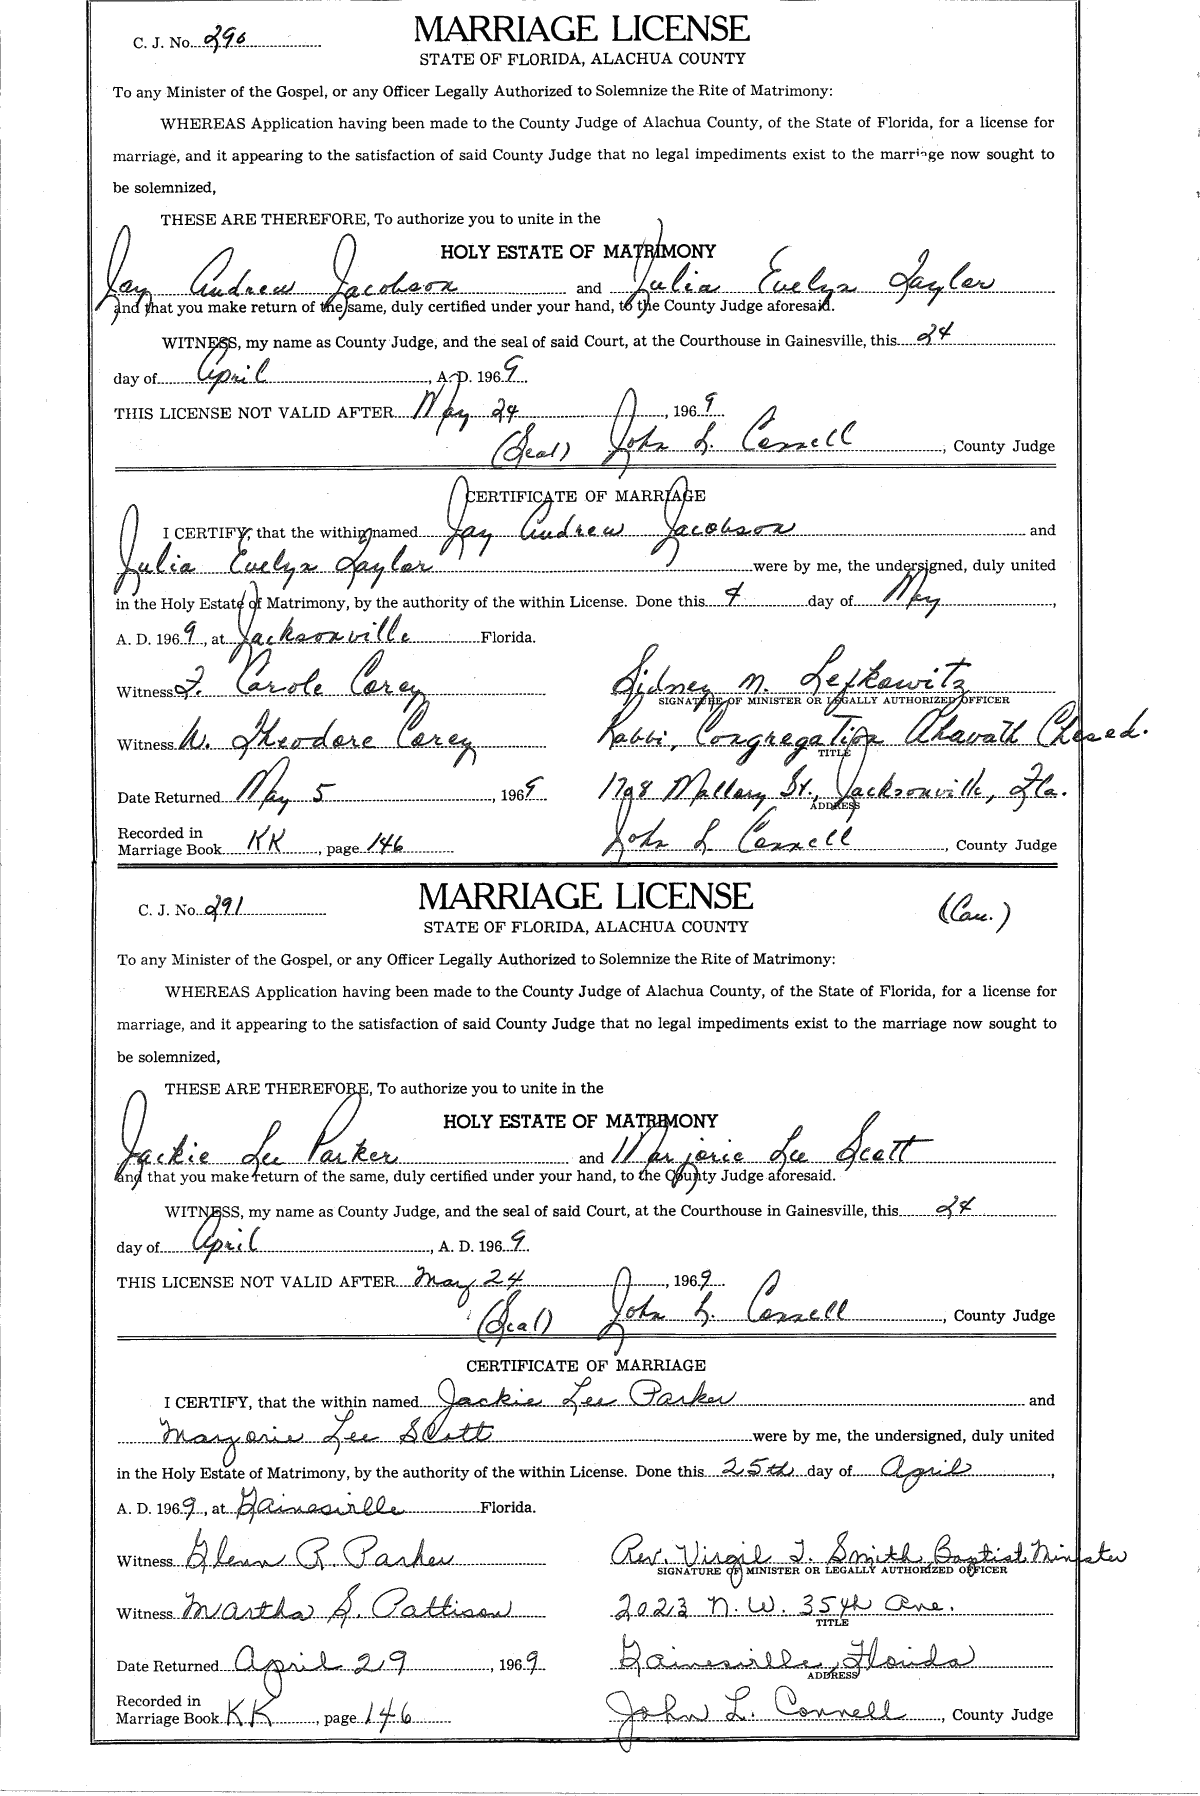 C. J. No. 290
MARRIAGE LICENSE
STATE OF FLORIDA, ALACHUA COUNTY
To any Minister of the Gospel, or any Officer Legally Authorized to Solemnize the Rite of Matrimony:
WHEREAS Application having been made to the County Judge of Alachua County, of the State of Florida, for a license for
marriage, and it appearing to the satisfaction of said County Judge that no legal impediments exist to the marriage now sought to
be solemnized,
THESE ARE THEREFORE, To authorize you to unite in the
HOLY ESTATE OF MATRIMONY
Jay Andrew Jacobson and Julia Evelyn Taylor
and that you make return of the same, duly certified under your hand, to the County Judge aforesaid.
WITNESS, my name as County Judge, and the seal of said Court, at the Courthouse in Gainesville, this 24
day of April, A. D. 1969.
THIS LICENSE NOT VALID AFTER May 24, 1969.
(Seal) John L. Connell, County Judge
CERTIFICATE OF MARRIAGE
I CERTIFY, that the within named Jay Andrew Jacobson and
Julia Evelyn Taylor were by me, the undersigned, duly united
in the Holy Estate of Matrimony, by the authority of the within License. Done this 4 day of May,
A. D. 1969, at Jacksonville Florida.
Witness J. Carole Corey Sidney M. Lefkowitz
SIGNATURE OF MINISTER OR LEGALLY AUTHORIZED OFFICER
Witness W. Theodore Corey Rabbi, Congregation Ahavath Chesed.
TITLE
Date Returned May 5, 1969 1798 Mallory St., Jacksonville, Fla.
ADDRESS
Recorded in
Marriage Book KK, page 146 John L. Connell, County Judge
C. J. No. 291
MARRIAGE LICENSE
(Cau.)
STATE OF FLORIDA, ALACHUA COUNTY
To any Minister of the Gospel, or any Officer Legally Authorized to Solemnize the Rite of Matrimony:
WHEREAS Application having been made to the County Judge of Alachua County, of the State of Florida, for a license for
marriage, and it appearing to the satisfaction of said County Judge that no legal impediments exist to the marriage now sought to
be solemnized,
THESE ARE THEREFORE, To authorize you to unite in the
HOLY ESTATE OF MATRIMONY
Jackie Lee Parker and Marjorie Lee Scott
and that you make return of the same, duly certified under your hand, to the County Judge aforesaid.
WITNESS, my name as County Judge, and the seal of said Court, at the Courthouse in Gainesville, this 24
day of April, A. D. 1969.
THIS LICENSE NOT VALID AFTER May 24, 1969.
(Seal) John L. Connell, County Judge
CERTIFICATE OF MARRIAGE
I CERTIFY, that the within named Jackie Lee Parker and
Marjorie Lee Scott were by me, the undersigned, duly united
in the Holy Estate of Matrimony, by the authority of the within License. Done this 25th day of April,
A. D. 1969, at Gainesville Florida.
Witness Glenn R. Parker Rev. Virgil T. Smith, Baptist Minister
SIGNATURE OF MINISTER OR LEGALLY AUTHORIZED OFFICER
Witness Martha S. Pattison 2023 N. W. 35th Ave.
TITLE
Date Returned April 29, 1969 Gainesville, Florida
ADDRESS
Recorded in
Marriage Book KK, page 146 John L. Connell, County Judge